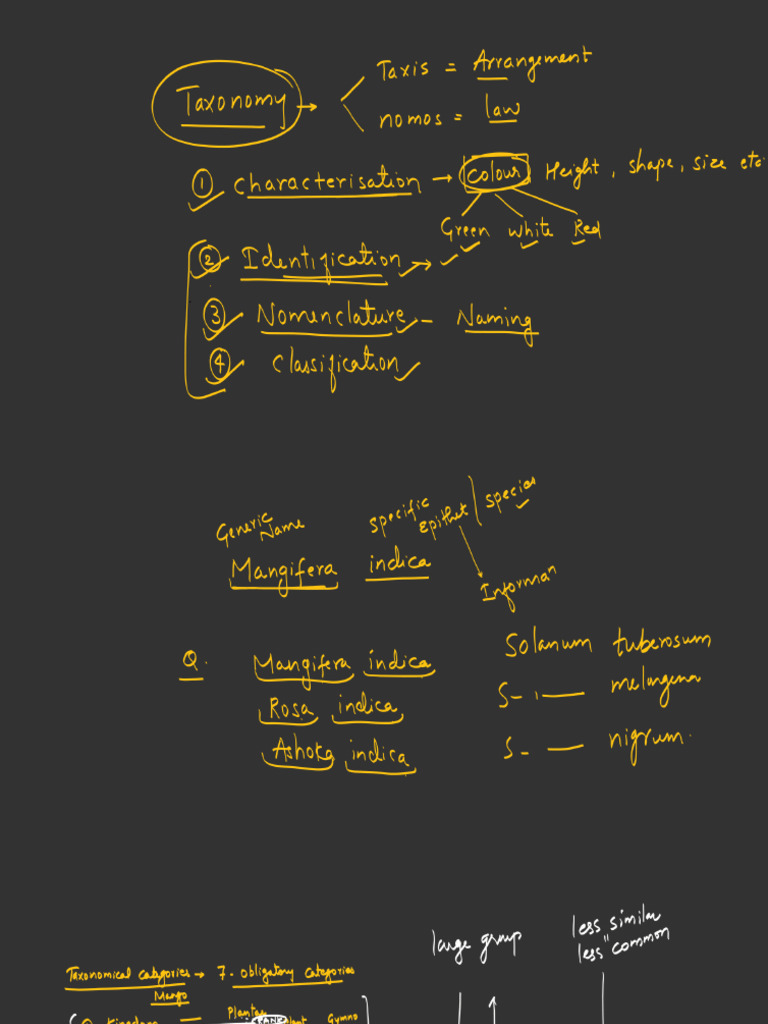 Taxonomy → Taxis = Arrangement
nomos = law
① Characterisation → colour Height, shape, size etc.
Green white Red
② Identification →
③ Nomenclature - Naming
④ Classification
Generic Name specific Epithet / species
Mangifera indica
Informan
Q. Mangifera indica
Rosa indica
Ashoka indica
Solanum tuberosum
S- melongena
S- nigrum.
large group
less similar
less common
Taxonomical categories → 7. obligatory categories
Mango
Kingdom — Plantae
RANK plant Gymno